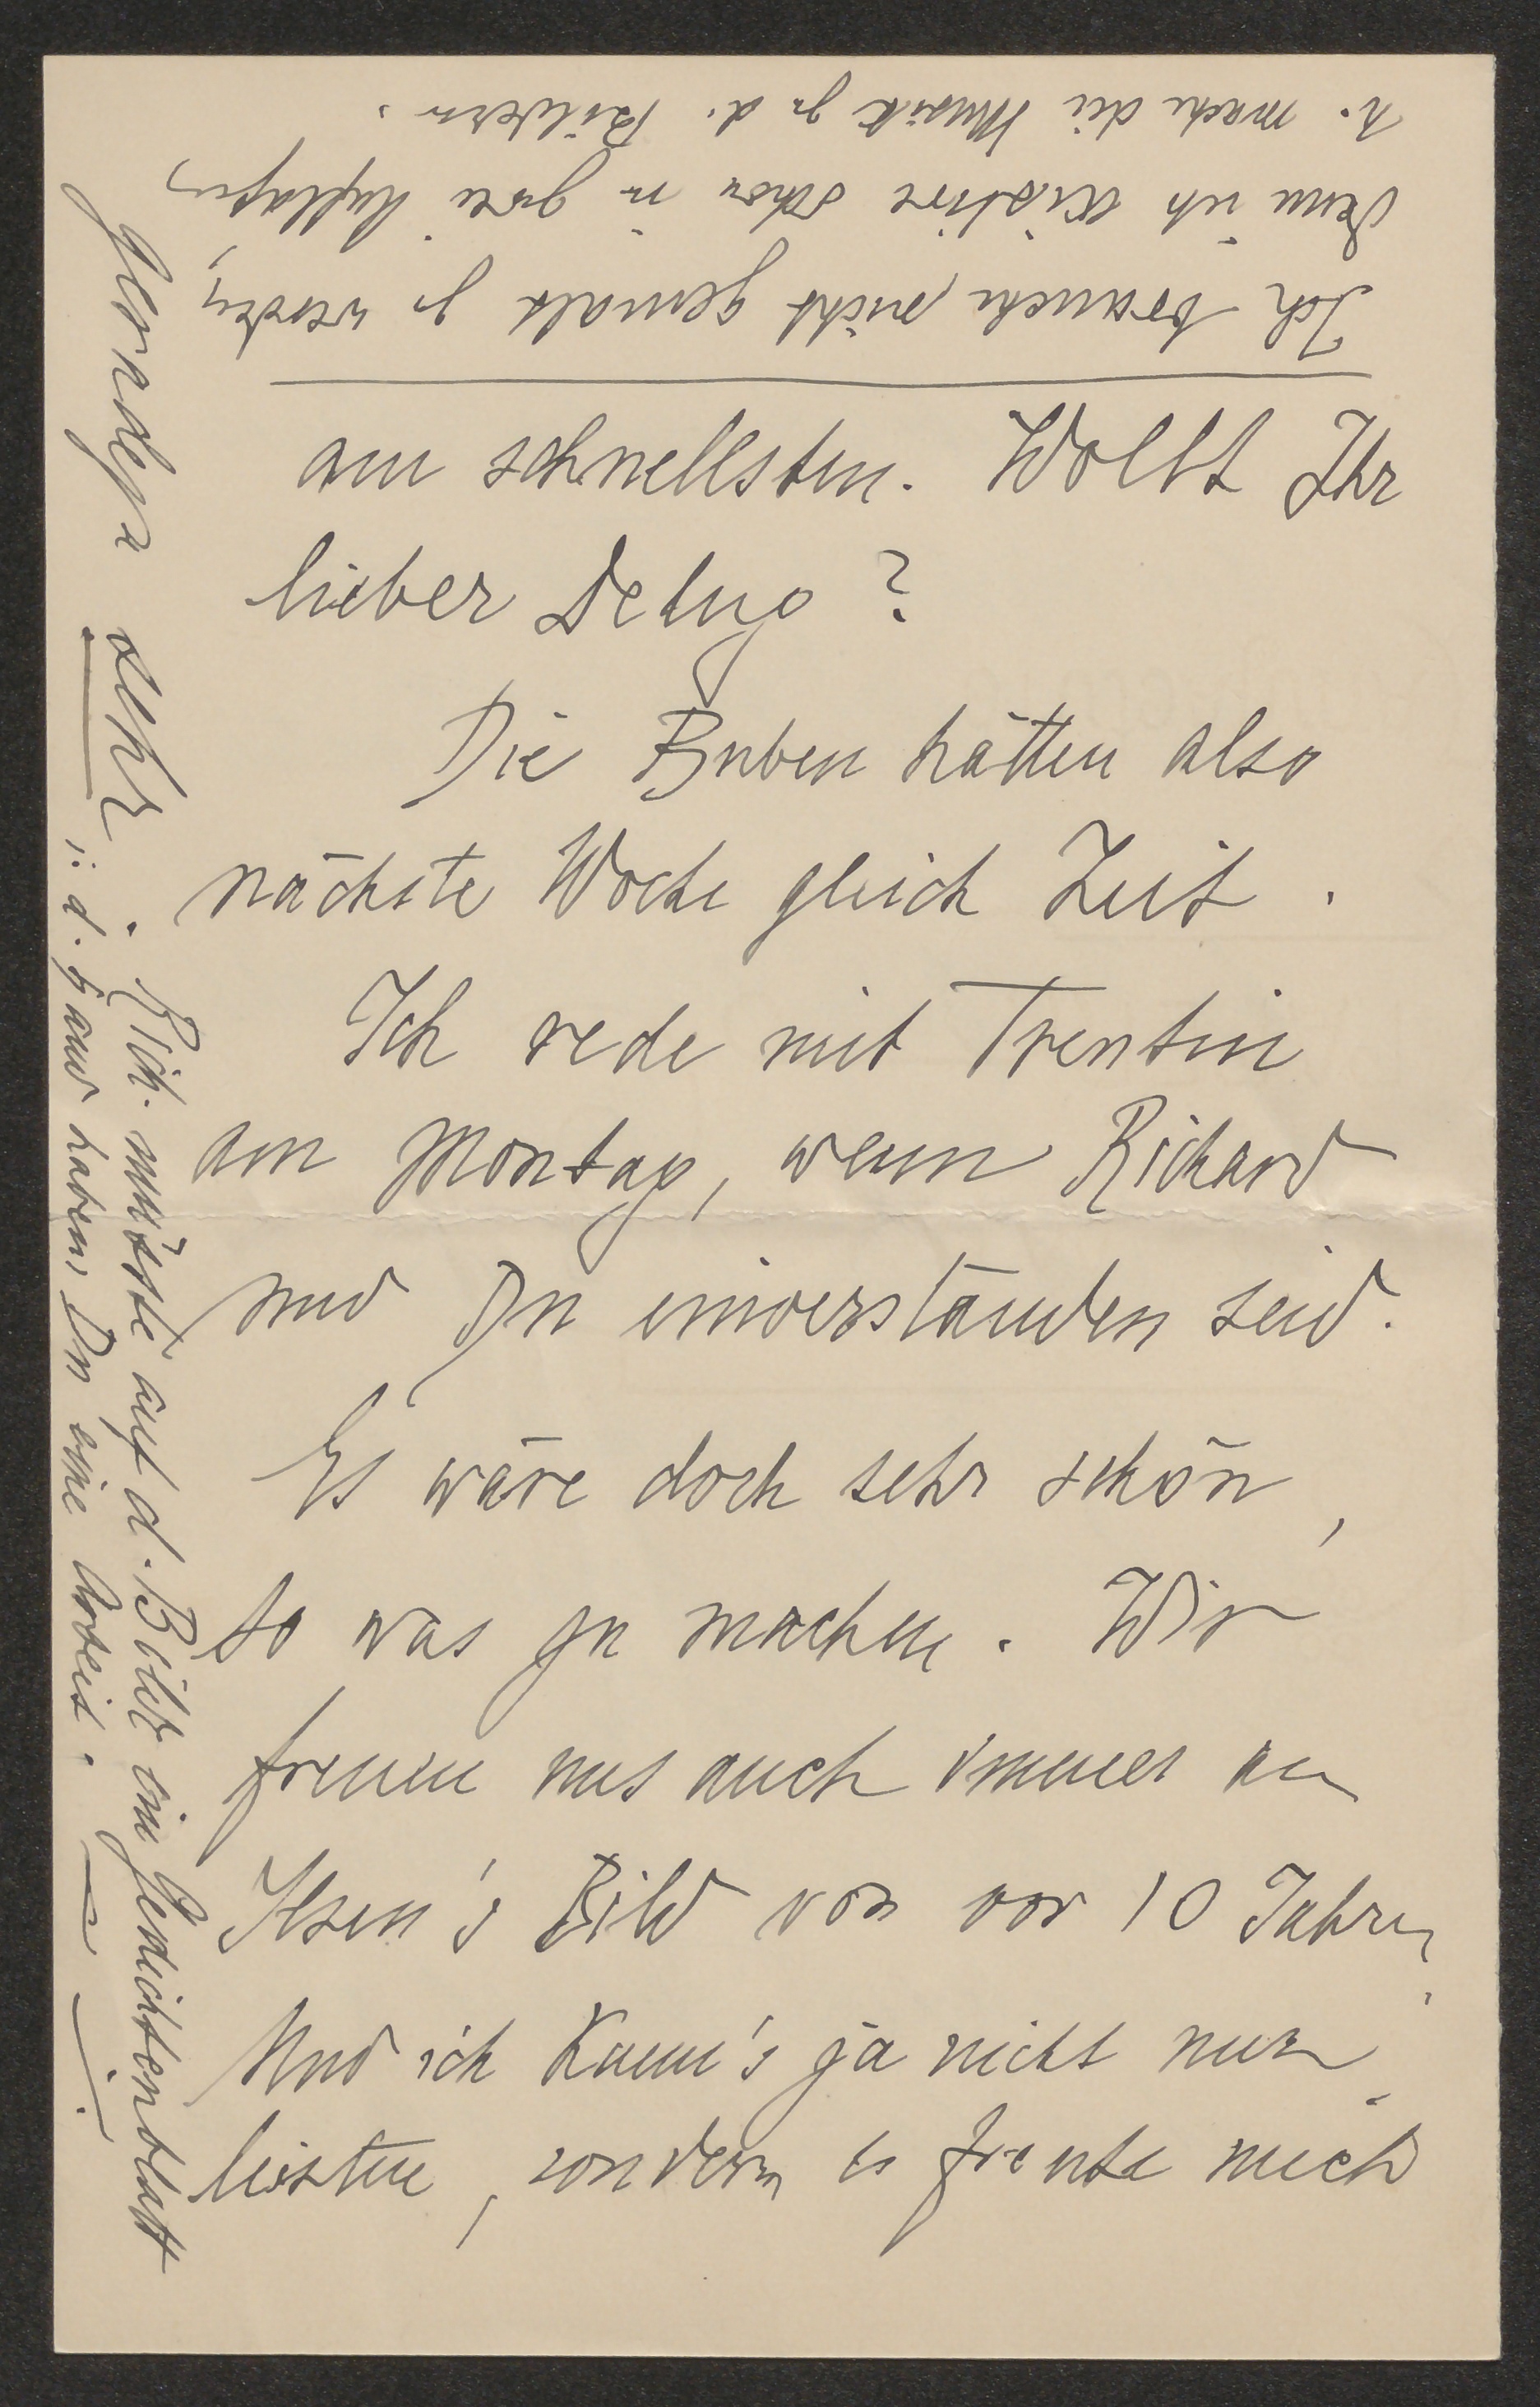 am schnellsten. Wollt Ihr
lieber Delug?
Die Buben hätten also
nächste Woche gleich Zeit.
Ich rede mit Trentin
am Montag, wenn Richard
und Du einverstanden seid.
Es wäre doch sehr schön,
so was zu machen. Wir
freuen uns auch immer an
Ilsen's Bild von vor 10 Jahren.
Und ich kann's ja nicht nur
leisten, sondern es freute mich
sehr. Rich. müsste auf d. Bild ein Gedichtenblatt
i. d. Hand haben, Du eine Arbeit.
Ich brauche nicht gemalt zu werden,
denn ich existire schon in zwei Auflagen,
u. mache die Musik zu d. Bildern.